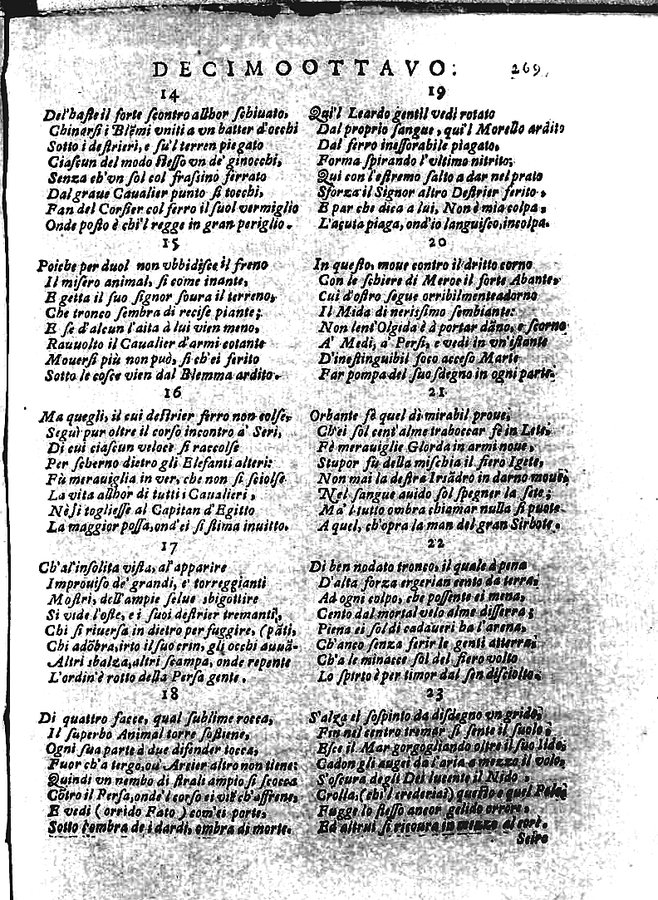 DECIMOOTTAVO:
269.
14
Del'haste il forte scontro allhor schiuato,
Chinarsi i Blẽmi vniti a vn batter d'occhi
Sotto i destrieri, e su'l terren piegato
Ciascun del modo stesso vn de' ginocchi,
Senza ch'vn sol col frassino ferrato
Dal graue Caualier punto si tocchi,
Fan del Corsier col ferro il suol vermiglio
Onde posto è chi'l regge in gran periglio.
15
Poiche per duol non vbbidisce il freno
Il misero animal, si come inante,
E getta il suo signor soura il terreno,
Che tronco sembra di recise piante;
E se d'alcun l'aita à lui vien meno,
Rauuolto il Caualier d'armi cotante
Mouersi più non può, si ch'ei ferito
Sotto le cosce vien dal Blemma ardito.
16
Ma quegli, il cui destrier ferro non colse,
Seguì pur oltre il corso incontro a' Seri,
Di cui ciascun veloce si raccolse
Per scherno dietro gli Elefanti alteri:
Fù merauiglia in ver, che non si sciolse
La vita allhor di tutti i Caualieri,
Nè si togliesse al Capitan d'Egitto
La maggior possa, ond'ei si stima inuitto.
17
Ch'al'insolita vista, al'apparire
Improuiso de' grandi, e' torreggianti
Mostri, dell'ampie selue sbigottire
Si vide l'oste, e i suoi destrier tremanti,
Chi si riuersa in dietro per fuggire, (pãti,
Chi adõbra, irto il suo crin, gli occhi auuã-
Altri sbalza, altri scampa, onde repente
L'ordin'è rotto della Persa gente.
18
Di quattro facce, qual sublime rocca,
Il superbo Animal torre sostiene,
Ogni sua parte à due difender tocca,
Fuor ch'a tergo, ou' Arcier altro non tiene:
Quindi vn nembo di strali ampio si scocca
Cõtro il Persa, onde'l corso ei viẽ ch'affrene,
E vedi (orrido Fato) com'ei porte,
Sotto l'ombra de i dardi, ombra di morte.
19
Qui'l Leardo gentil vedi rotato
Dal proprio sangue, qui'l Morello ardito
Dal ferro inessorabile piagato,
Forma spirando l'vltimo nitrito;
Qui con l'estremo salto a dar nel prato
Sforza il Signor altro Destrier ferito,
E par che dica a lui, Non è mia colpa,
L'acuta piaga, ond'io languisco, incolpa.
20
In questo, moue contro il dritto corno
Con le schiere di Meroe il forte Abante,
Cui d'ostro segue orribilmente adorno
Il Mida di nerissimo sembiante:
Non lent'Olgida è à portar dãno, e scorno
A' Medi, a' Persi, e vedi in vn'istante
D'inestinguibil foco acceso Marte
Far pompa del suo sdegno in ogni parte.
21
Orbante fè quel dì mirabil proue,
Ch'ei sol cent'alme traboccar fè in Lete,
Fè merauiglie Glorda in armi noue,
Stupor fù della mischia il fiero Igete,
Non mai la destra Irsàdro in darno moue,
Nel sangue auido sol spegner la sete;
Ma'l tutto ombra chiamar nulla si puote
A quel, ch'opra la man del gran Sirbote.
22
Di ben nodato tronco, il quale à pena
D'alta forza ergerian cento da terra,
Ad ogni colpo, che possente ei mena,
Cento dal mortal velo alme disserra;
Piena ei sol di cadaueri ha l'arena,
Ch'anco senza ferir le genti atterra,
Ch'a le minacce sol del fiero volto
Lo spirto è per timor dal sen disciolto.
23
S'alza el sospinto da disdegno vn grido,
Fin nel centro tremar si sente il suolo,
Esce il Mar gorgogliando oltre il suo lido,
Cadon gli augei da l'aria a mezzo il volo,
S'oscura degli Dei lucente il Nido,
Crolla, (chi'l crederia?) questo e quel Polo,
Fugge lo stesso ancor gelido orrore,
Ed altrui si ricoura in mezzo al cort.
Seiro